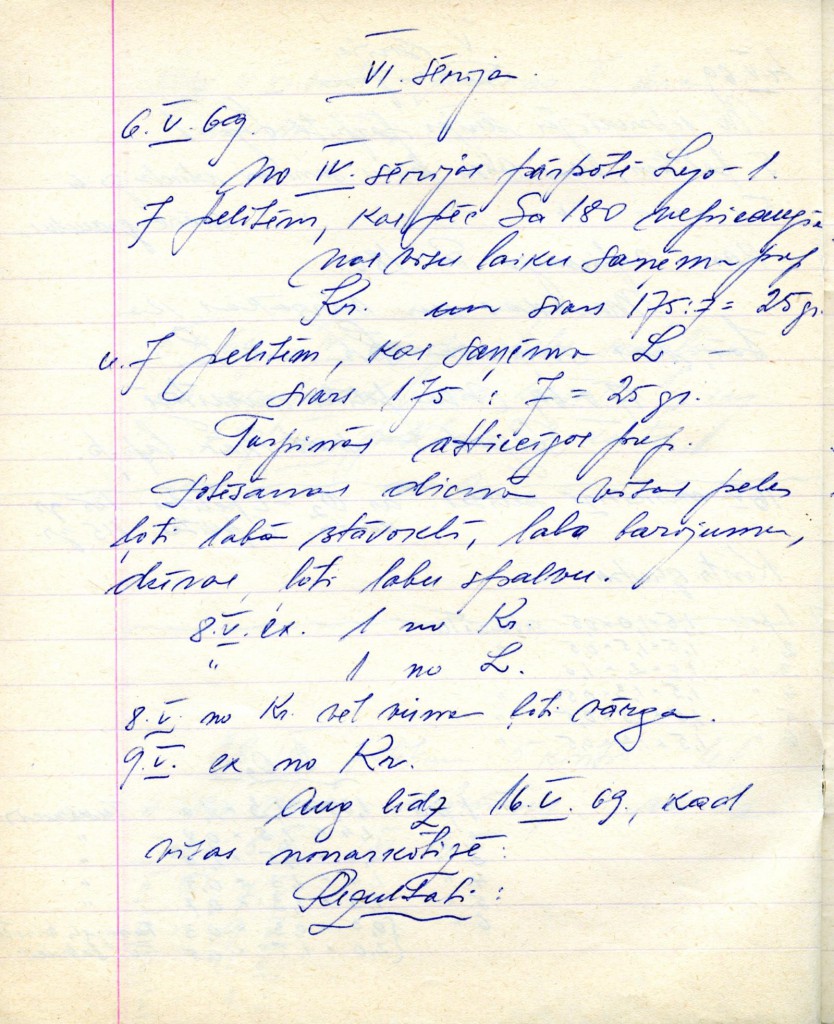 VI. sērija.
6. V. 69.
No IV. sērijas pārpotē Lujo-1.
7 pelītēm, kas pēc Sa 180 nepieauga
nos visu laiku saņēma prep
Kr. svars 175:7= 25gr.
u. 7 pelītēm, kas saņēma L –
svars 175 : 7 = 25 gr.
Turpinās attiecīgos prep.
Potēšanas dienā visas peles
ļoti labā stāvoklī, laba barojuma,
dzīvas, ļoti labu spalvu.
8.V. ex. 1 no Kr.
" 1 no L.
8.V. no Kr. vēl viena ļoti vārga.
9.V. ex no Kr.
Aug līdz 16.V.69., kad
visas nonarkotizē:
Rezultāti: